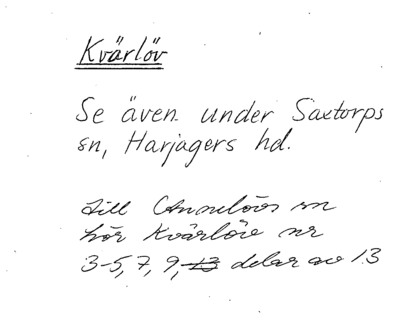 Kvärlöv
Se även under Saxtorps
sn, Harjagers hd.
till Annelövs sn
hör Kvärlöv nr
3-5, 7, 9, 13 delar av 13